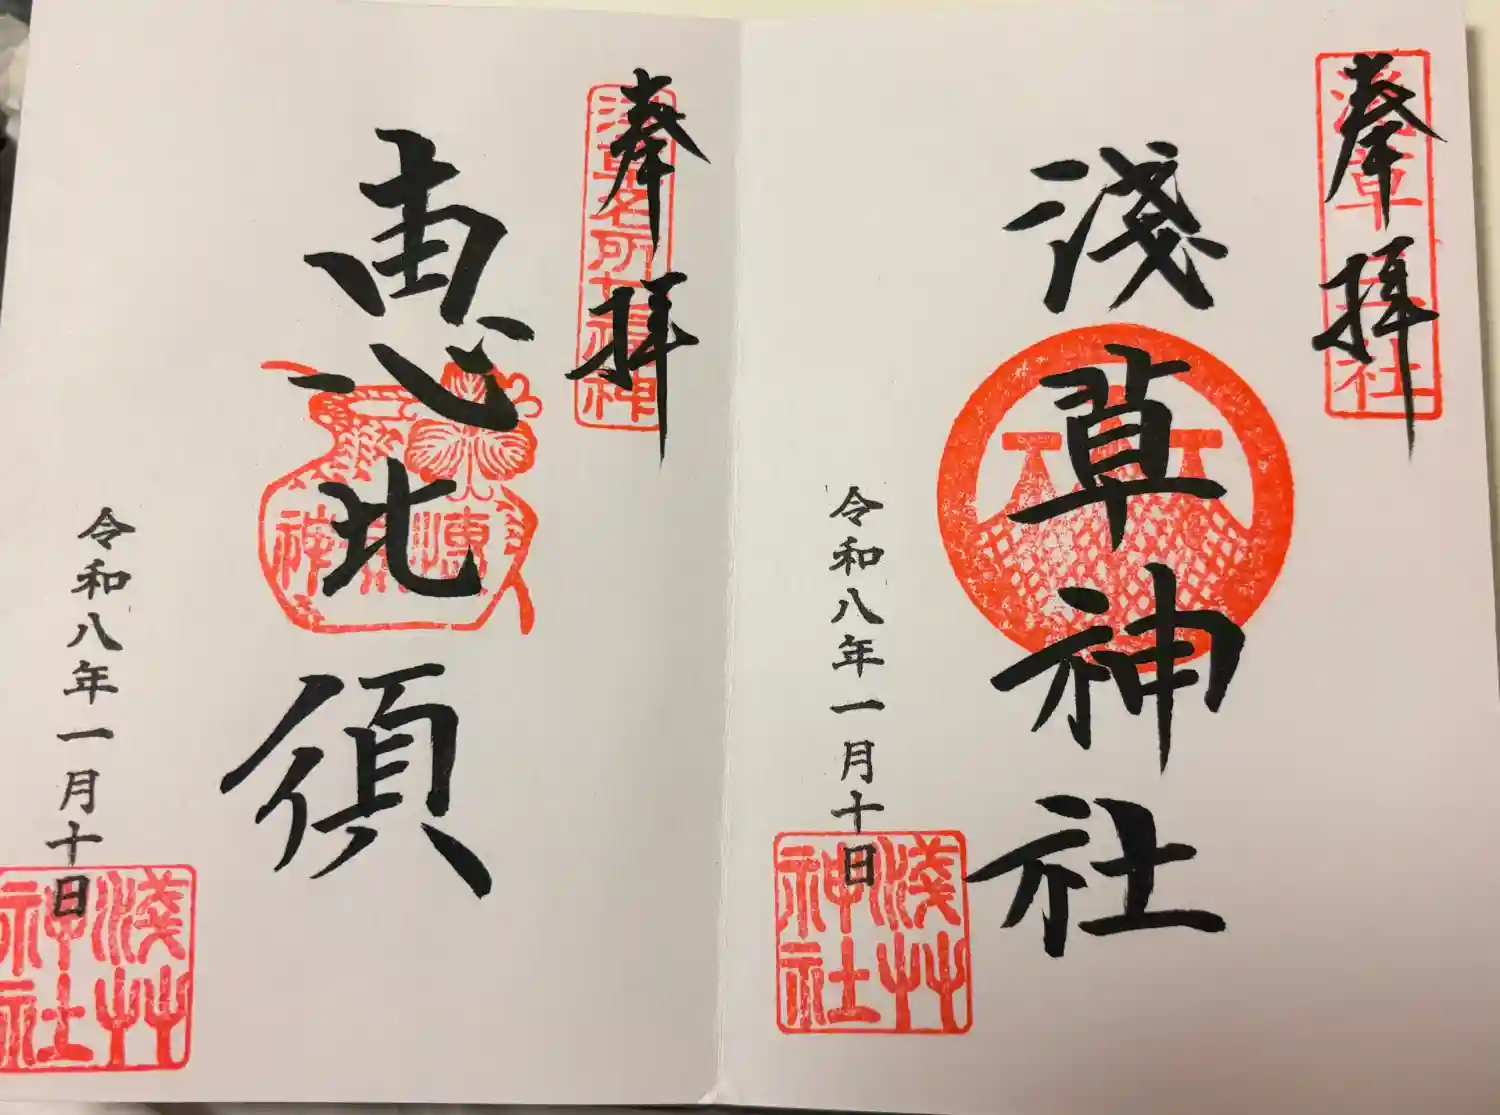 奉拝
淺草神社
淺草神社
令和八年一月十日
淺艸神社
奉拝
浅草名所七福神
恵比須
令和八年一月十日
淺艸神社